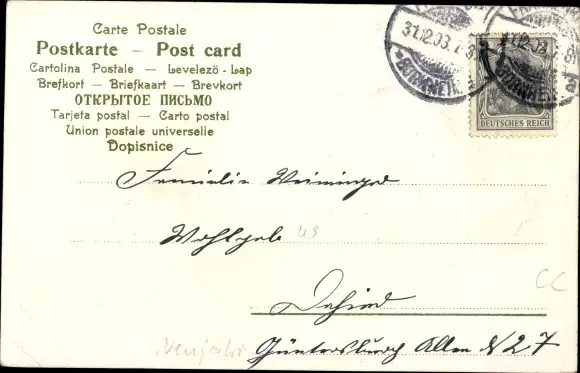 Carte Postale
Postkarte — Post card
Cartolina Postale — Levelezö-Lap
Brefkort — Briefkaart — Brevkort
ОТКРЫТОЕ ПИСЬМО
Tarjeta postal — Carto postal
Union postale universelle
Dopisnice
31.12.03.
BORNHEIM
DEUTSCHES REICH
Familie Weininger
Wohlgeb
us
CC
Dahier
Neujahr
Güntersburg Allee N 27